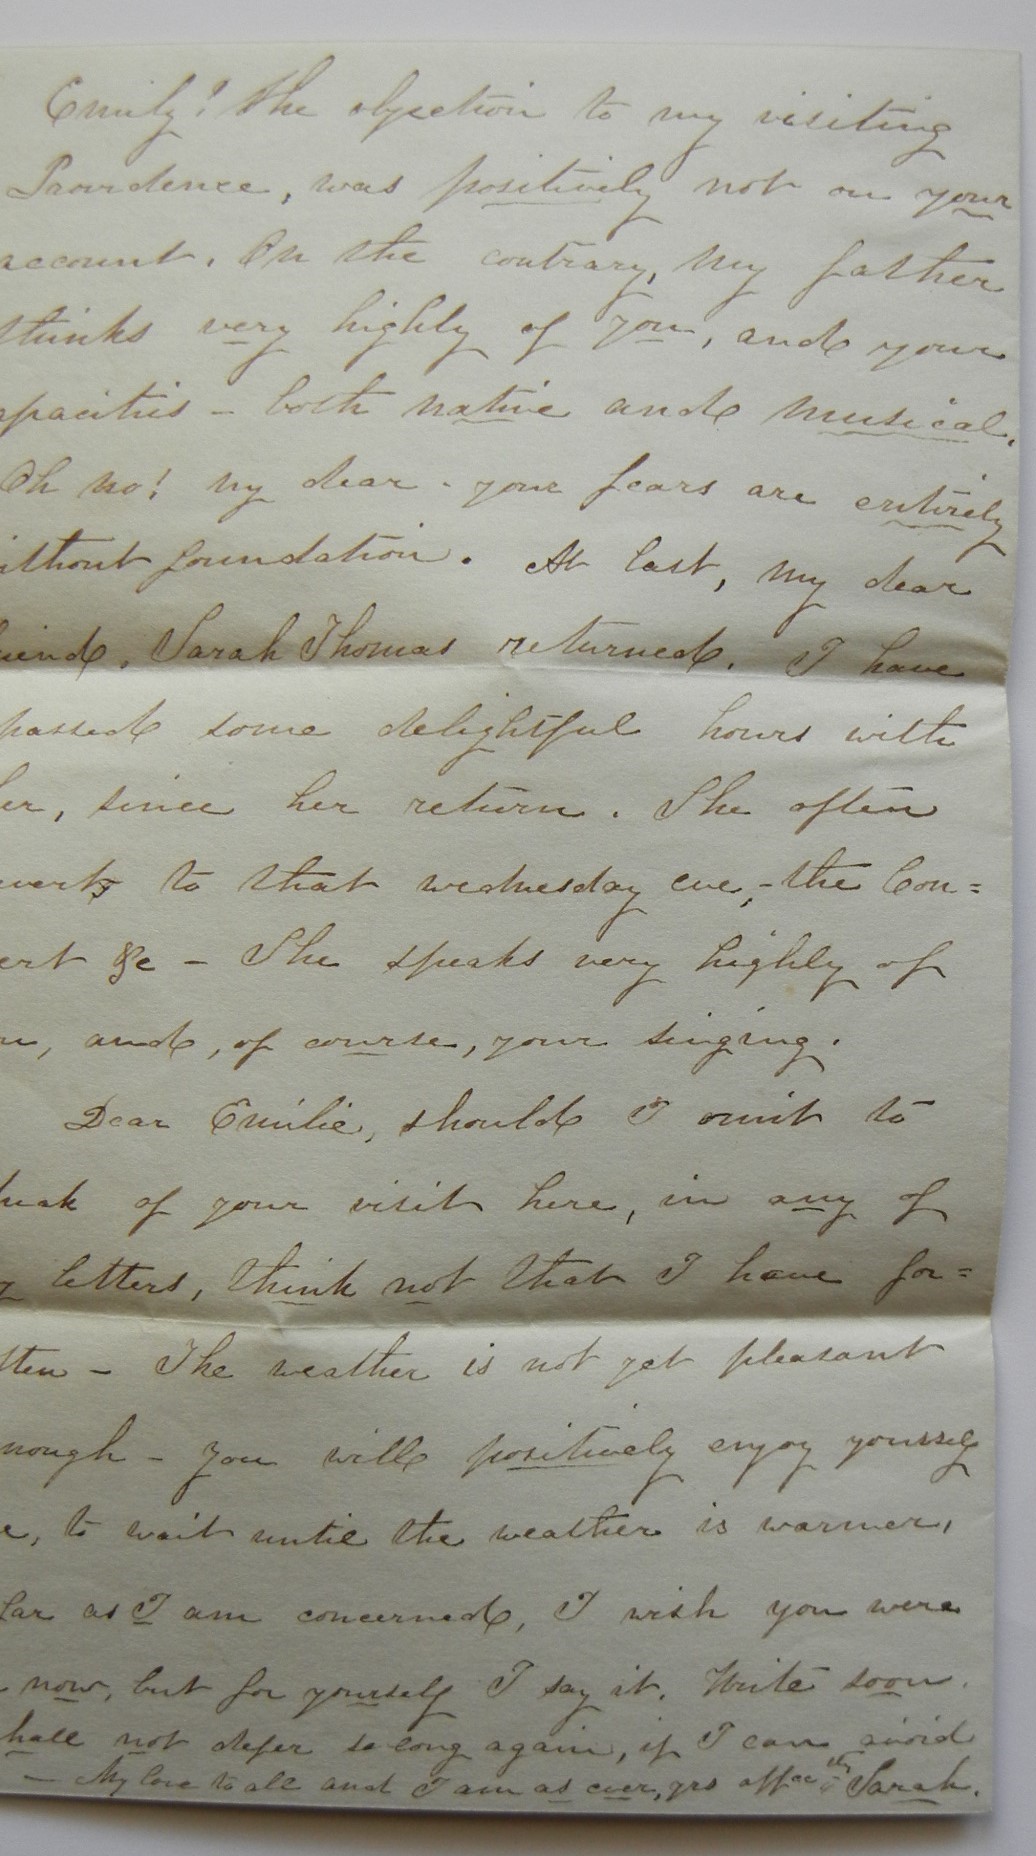 Emily! The objection to my visiting
Providence, was positively not on your
account. On the contrary, my father
thinks very highly of you, and your
apacities - both native and musical.
Oh no! my dear - your fears are entirely
ithout foundation. At last, my dear
riend, Sarah Thomas returned. I have
passed some delightful hours with
her, since her return. She often
verts to that wednesday eve, - the Con=
ert &c - She speaks very highly of
u, and, of course, your singing.
Dear Emilie, should I omit to
peak of your visit here, in any of
y letters, think not that I have for=
tten - The weather is not yet pleasant
nough - you will positively enjoy yourself
e, to wait until the weather is warmer,
far as I am concerned, I wish you were
now, but for yourself I say it. Write soon.
hall not defer so long again, if I can avoid
- My love to all and I am as ever, yrs affectly Sarah.